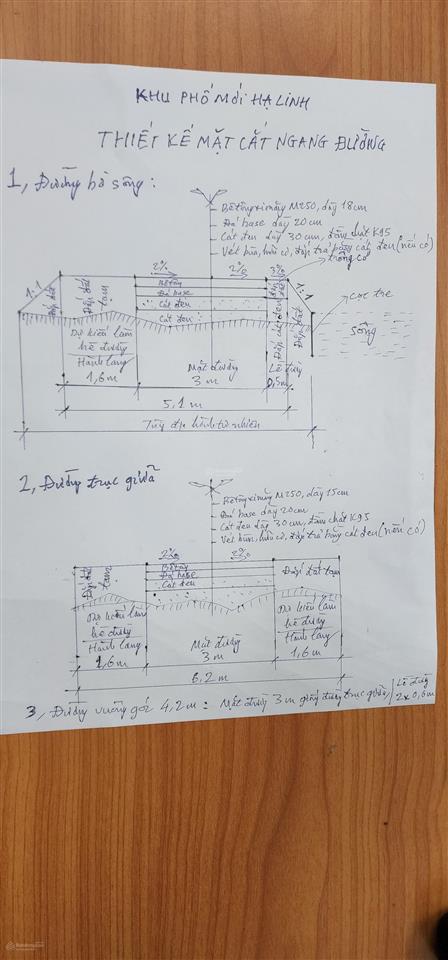 KHU PHỐ MỚI HẠ LINH
THIẾT KẾ MẶT CẮT NGANG ĐƯỜNG
1, Đường bờ sông:
Bê tông xi măng M250, dày 18cm
Đá base dày 20cm
Cát đen dày 30cm, đầm chặt K95
Vét bùn, hữu cơ, đắp trả bằng cát đen (nếu có)
2% 2% 3% trồng cỏ
1:1
Đắp đất
Đắp đất tạm
Bê tông
Đá base
Cát đen
Cát đen
Đắp cát đen
Đắp đất
1:1
cọc tre
sông
Dự kiến làm
hè đường
Hành lang
1,6m
Mặt đường
3m
Lề đường
0,5m
5,1m
Tùy địa hình tự nhiên
2, Đường trục giữa
Bê tông xi măng M250, dày 15cm
Đá base dày 20cm
Cát đen dày 30cm, đầm chặt K95
Vét bùn, hữu cơ, đắp trả bằng cát đen (nếu có)
2% 2%
Đắp đất tạm
Bê tông
Đá base
Cát đen
Đắp đất tạm
Dự kiến làm
hè đường
Hành lang
1,6m
Mặt đường
3m
Dự kiến làm
hè đường
Hành lang
1,6m
6,2m
3, Đường vuông góc 4,2m: Mặt đường 3m giống đường trục giữa, Lề đường 2x0,6m